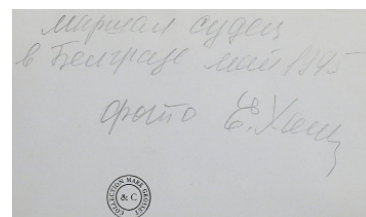 маршал судец
в Белграде май 1945
фото Е. Халд
COLLECTION MARK GROSSET
& C